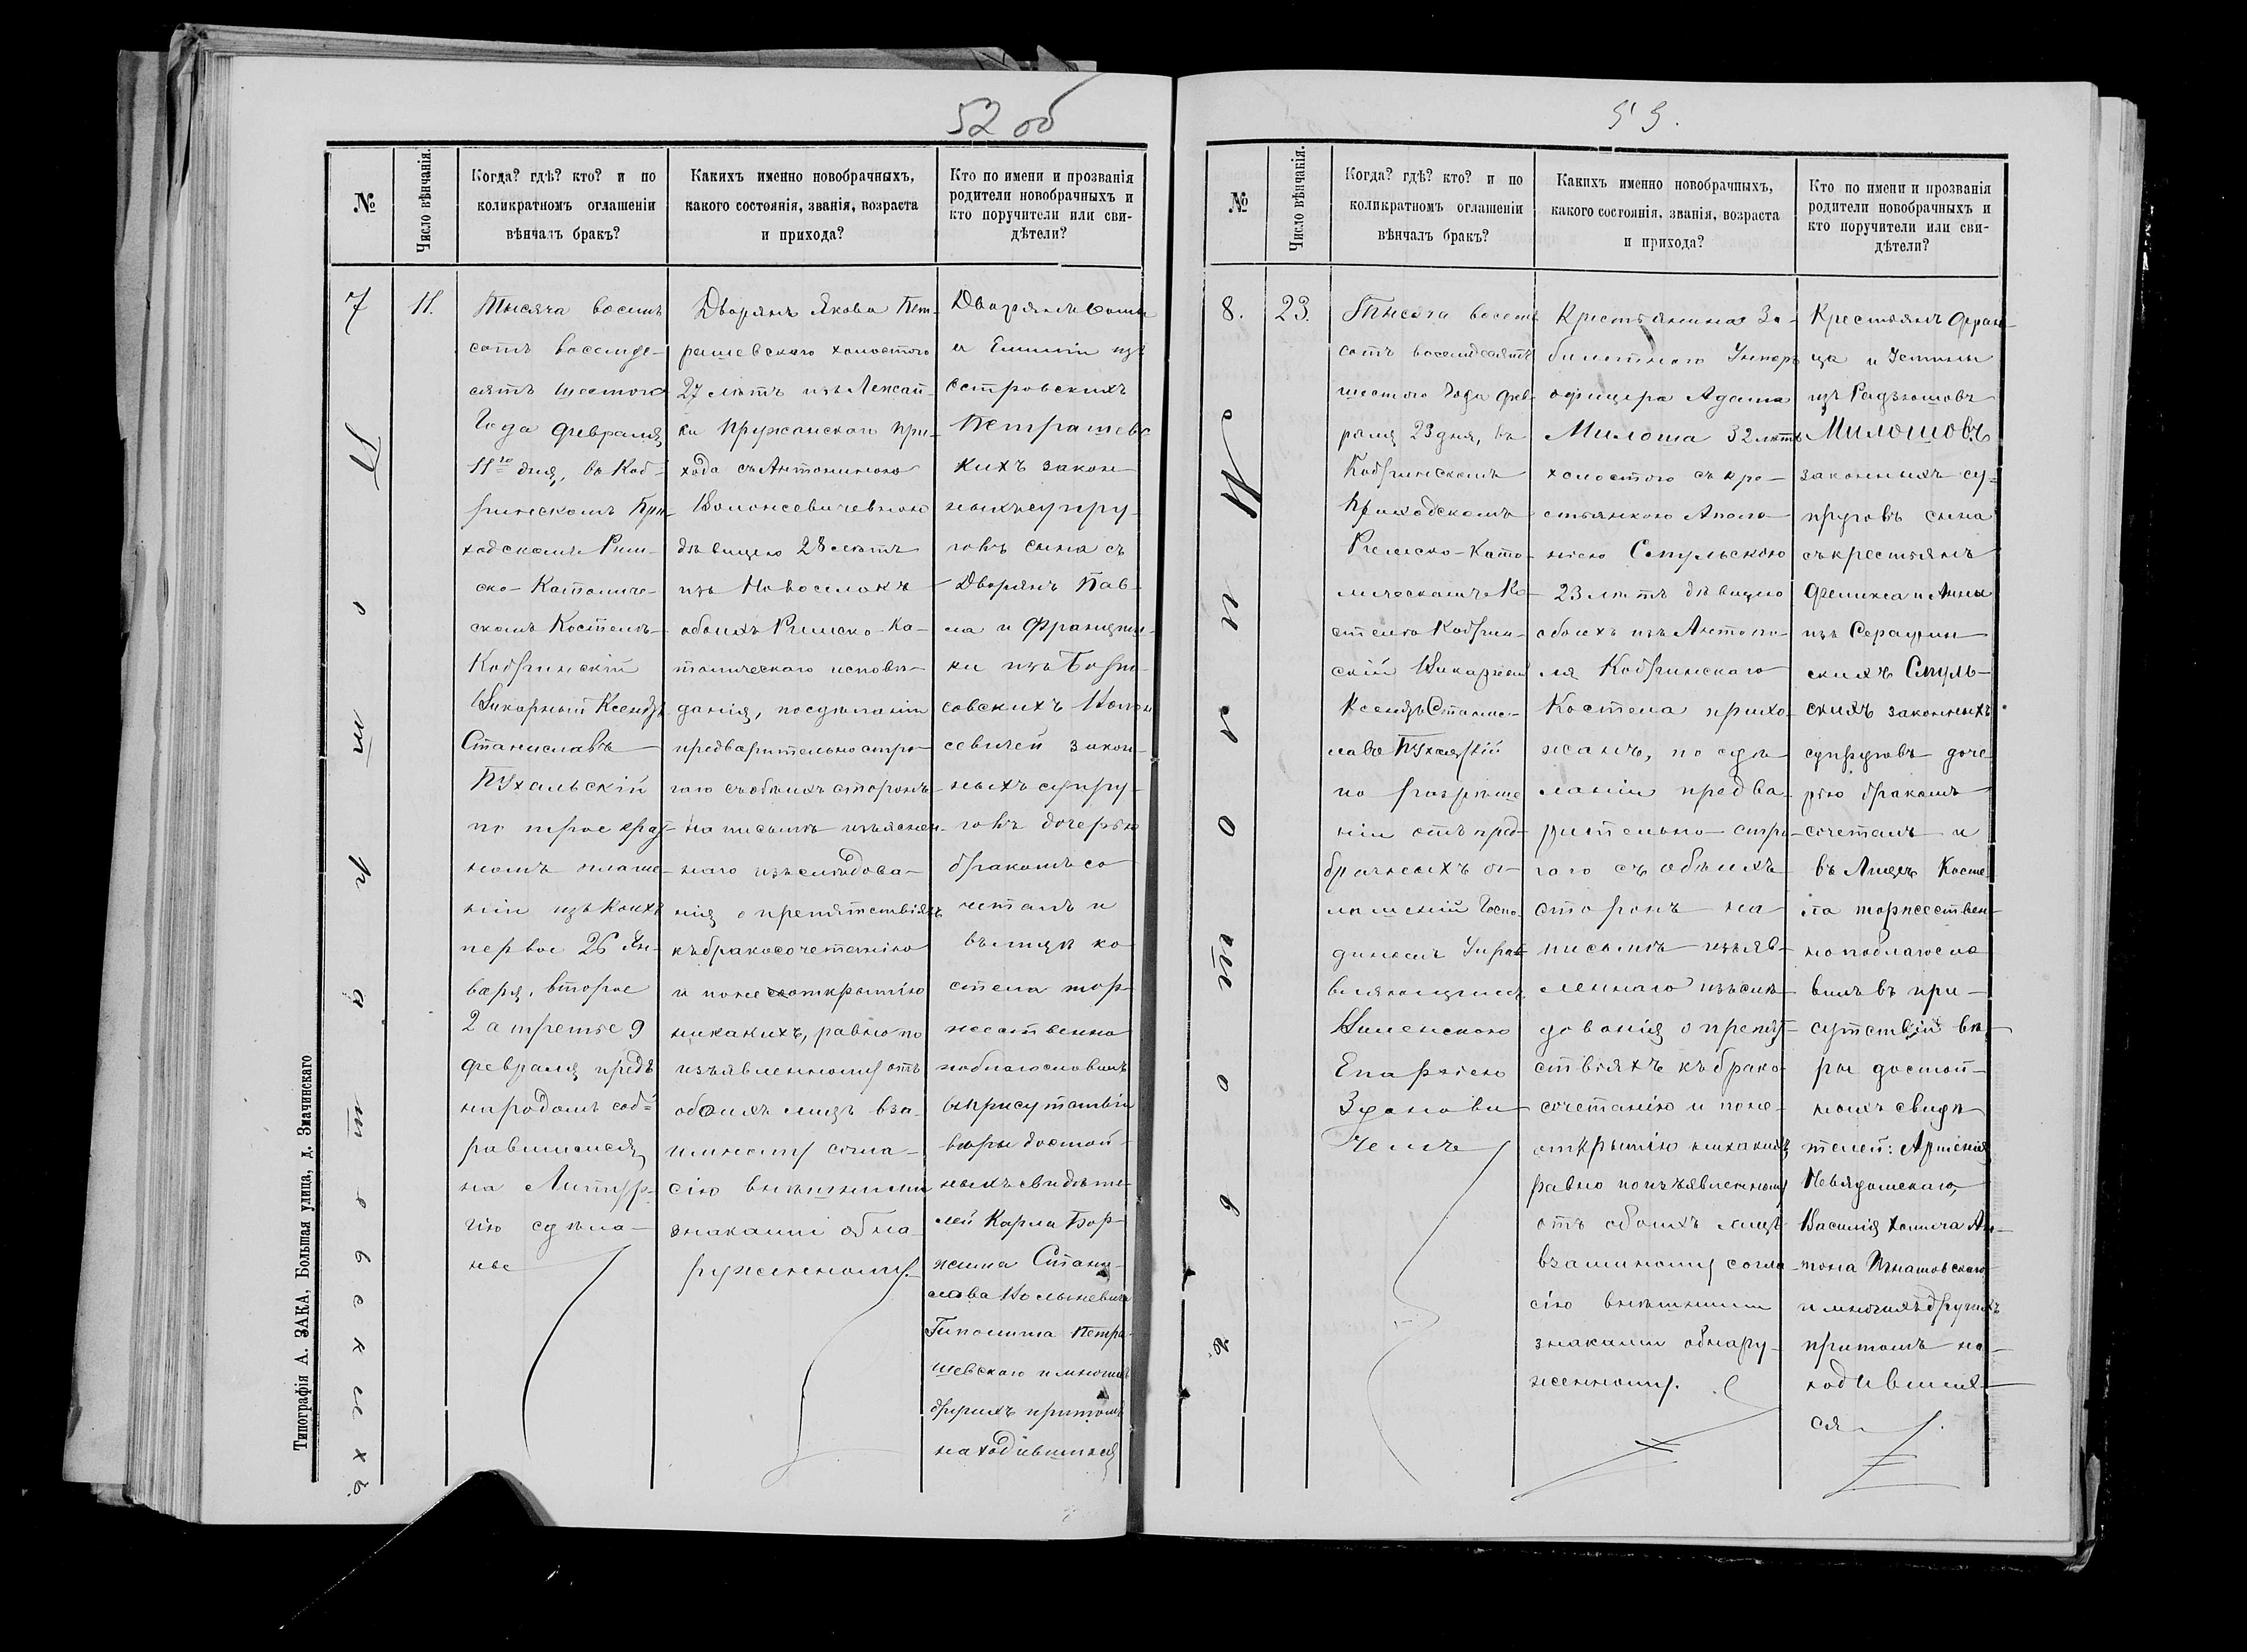 52 об
№
Число вѣнчанія.
Когда? гдѣ? кто? и по
коликратномъ оглашеніи
вѣнчалъ бракъ?
Какихъ именно новобрачныхъ,
какого состоянія, званія, возраста
и прихода?
Кто по имени и прозванія
родители новобрачныхъ и
кто поручители или сви-
дѣтели?
7
Петрашевскихъ.
11.
Тысяча восемь
сотъ восемде-
сятъ шестого
Года Февраля
11го дня, въ Коб-
ринскомъ При-
ходскомъ Рим-
ско-Католиче-
скомъ Костелѣ
Кобринскій
Викарный Ксендзъ
Станиславъ
Пухальскій
по трое крат-
номъ оглаше-
ніи изъ коихъ
первое 26 Ян-
варя, второе
2 а третье 9
Февраля предъ
народомъ соб-
равшимся
на Литур-
гію сдѣла-
нье
Дворянъ Якова Пет-
рашевскаго холостого
27 лѣтъ изъ
ки Пружанскаго при-
хода съ Антониною
Волонсевичевною
дѣвицею 28 лѣтъ
изъ Новоселокъ
обоихъ Римско-Ка-
толическаго исповѣ-
данія, посдѣланіи
предварительно стро-
гаго съ обѣихъ сторонъ
на письмѣ изъяснен-
наго изслѣдова-
нія о препятствіяхъ
къ бракосочетанію
и по неоткрытію
никакихъ, равно по
изъявленному отъ
обоихъ лицъ вза-
имному согла-
сію внѣшними
знаками обна-
руженному.
Дворянъ
и Емиліи изъ
Островскихъ
Петрашевс
кихъ закон-
ныхъ супру-
говъ сына съ
Дворянъ Пав-
ла и Францишки
изъ
совскихъ Волон
севичей закон-
ныхъ супру-
говъ дочерью
бракомъ со
четалъ и
въ лицѣ ко-
стела тор-
жественно
поблагословилъ
въ присутствіи
вѣры достой-
ныхъ свидѣте-
лей Карла Бор-
жима Стани-
слава
Гиполита Петра-
шевскаго и многихъ
другихъ притомъ
находившихся
Типографія А. ЗАКА, Большая улица, д. Змачинскаго
53.
№
Число вѣнчанія.
Когда? гдѣ? кто? и по
коликратномъ оглашеніи
вѣнчалъ бракъ?
Какихъ именно новобрачныхъ,
какого состоянія, званія, возраста
и прихода?
Кто по имени и прозванія
родители новобрачныхъ и
кто поручители или сви-
дѣтели?
8.
Милошовъ.
23.
Тысяча восемь
сотъ восемдесятъ
шестого Года Фев-
раля 23 дня, въ
Кобринскомъ
Приходскомъ
Римско-Като-
лическомъ Ко-
стелѣ Кобрин-
скій Викарный
Ксендзъ Станис-
лавъ Пухальскій
по разрѣше
ніи отъ пред-
брачныхъ ог-
лашеній Госпо-
диномъ Управ-
вляющимъ
Виленскою
Епархіею
Здановичемъ
Крестьянина За-
билетнаго Унтеръ
офицера Адама
Милоша 32 лѣтъ
холостого съ кре-
стьянкою Апол-
ніею Стульскою
23 лѣтъ дѣвицею
обоихъ изъ Антопо-
ля Кобринскаго
Костела прихо-
жанъ, по сдѣ-
ланіи предва-
рительно стро-
гаго съ обѣихъ
сторонъ на
письмѣ изъяв-
леннаго изъслѣ-
дованія о препят-
ствіяхъ къ брако-
сочетанію и по не-
открытію никакихъ
равно поизъявленному
отъ обоихъ лицъ
взаимному согла-
сію внѣшними
знаками обнару-
женному.
Крестьянъ Фран-
ца и Устины
изъ Радзюшовъ
Милошовъ
законныхъ су-
пруговъ сына
съ крестьянъ
Феликса и Анны
изъ Серафин-
скихъ Стуль-
скихъ законныхъ
супруговъ доче
рью бракомъ
сочеталъ и
въ Лицѣ Косте
ла торжествен-
но поблагосло
вилъ въ при-
сутствіи вѣ-
ры достой-
ныхъ свидѣ-
телей:
Василія Хомича Ан-
тона Игнатовскаго
и многихъ другихъ
притомъ на-
ходивших-
ся